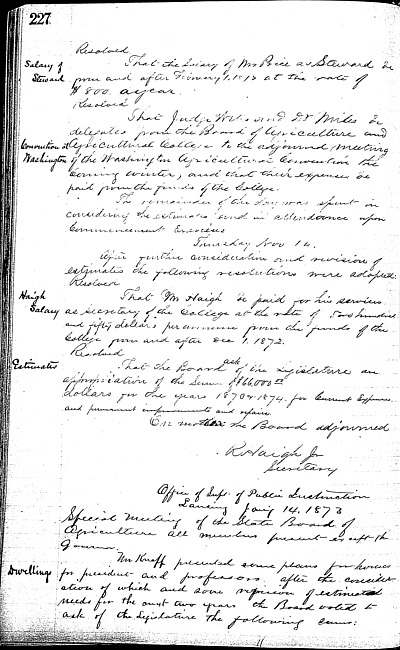 227
Resolved
Salary of Steward
That the Salary of Mr Price as Steward be
from and after February 1. 1873 at the rate of
$800. a year.
Resolved
That Judge Wells and Dr Miles be
delegates from the Board of Agriculture and
Convention at Washington
Agricultural College to the adjourned meeting
of the Washington Agricultural Convention the
coming winter, and that their expenses be
paid from the funds of the College.
The remainder of the day was spent in
considering the estimates and in attendance upon
Commencement Exercises
Thursday Nov 14.
After further consideration and revision of
estimates the following resolutions were adopted:
Resolved
Haigh Salary
That Mr Haigh be paid for his services
as Secretary of the College at the rate of two hundred
and fifty dollars per annum from the funds of the
College from and after Dec 1, 1872.
Resolved
Estimates
That the Board ask of the Legislature an
appropriation of the Sum of $66,000
dollars for the years 1873 & 1874. for Current Expenses
and permanent improvements and repairs.
On motion the Board adjourned
R Haigh Jr
Secretary
Office of Supt. of Public Instruction
Lansing Jany 14, 1873
Special Meeting of the State Board of
Agriculture all members present except the
Governor.
Dwellings
Mr Knapp presented some plans for houses
for president and professors after the consider
ation of which and some revision of estimated
needs for the next two years the Board voted to
ask of the Legislature the following sums: